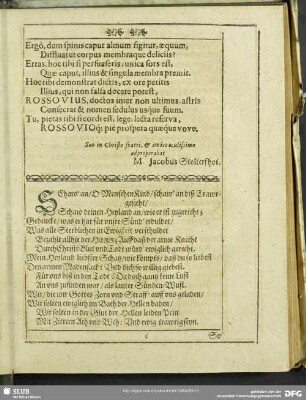 Ergò, dum spinis caput almum figitur, æquum,
Diffluat ut corpus membraque deliciis?
Erras, hoc tibi si persuaseris; unica sors est,
Quæ caput, illius & singula membra premit.
Hoc tibi demonstrat dictis, ex ore petitis
Illius, qui non falsa docere potest,
ROSSOVIUS, doctos inter non ultimus, astris
Consecrat & nomen sedulus usque suum.
Tu, pietas tibi si cordi est, lege, lecta reserva,
ROSSOVIOq; piè prospera quæque vove.
Suo in Christo fratri, & amico
adproperabat
M. Jacobus Stolterfoht.
Schaw' an / O Menschen Kind / schaw' an diß Trawr-
gesicht /
Schaw deinen Heyland an / wie er ist zugericht;
Gedencke / was er hat für unsre Sünd' erduldet /
Was alle Sterblichen in Ewigkeit verschuldet
Bezahlt allhie der HErr: Auff daß der arme Knecht
Durch Christi Blut und Todt würd' ewiglich gerecht.
Mein Heyland / liebster Schatz / wie kompts / daß du so liebest
Den armen Madensack? Und dich so willig giebest
Für uns biß in den Todt? Da doch gantz keine Lust
An uns zufinden war / als lauter Sünden-Wust.
Wir / die wir Gottes Zorn und Straff' auff uns geladen /
Wir solten ewiglich im Bach der Hellen baden /
Wir solten in der Glut der Hellen leiden Pein
Mit Zittern Ach und Weh: Und ewig trawrig seyn.
So
SLUB
DFG